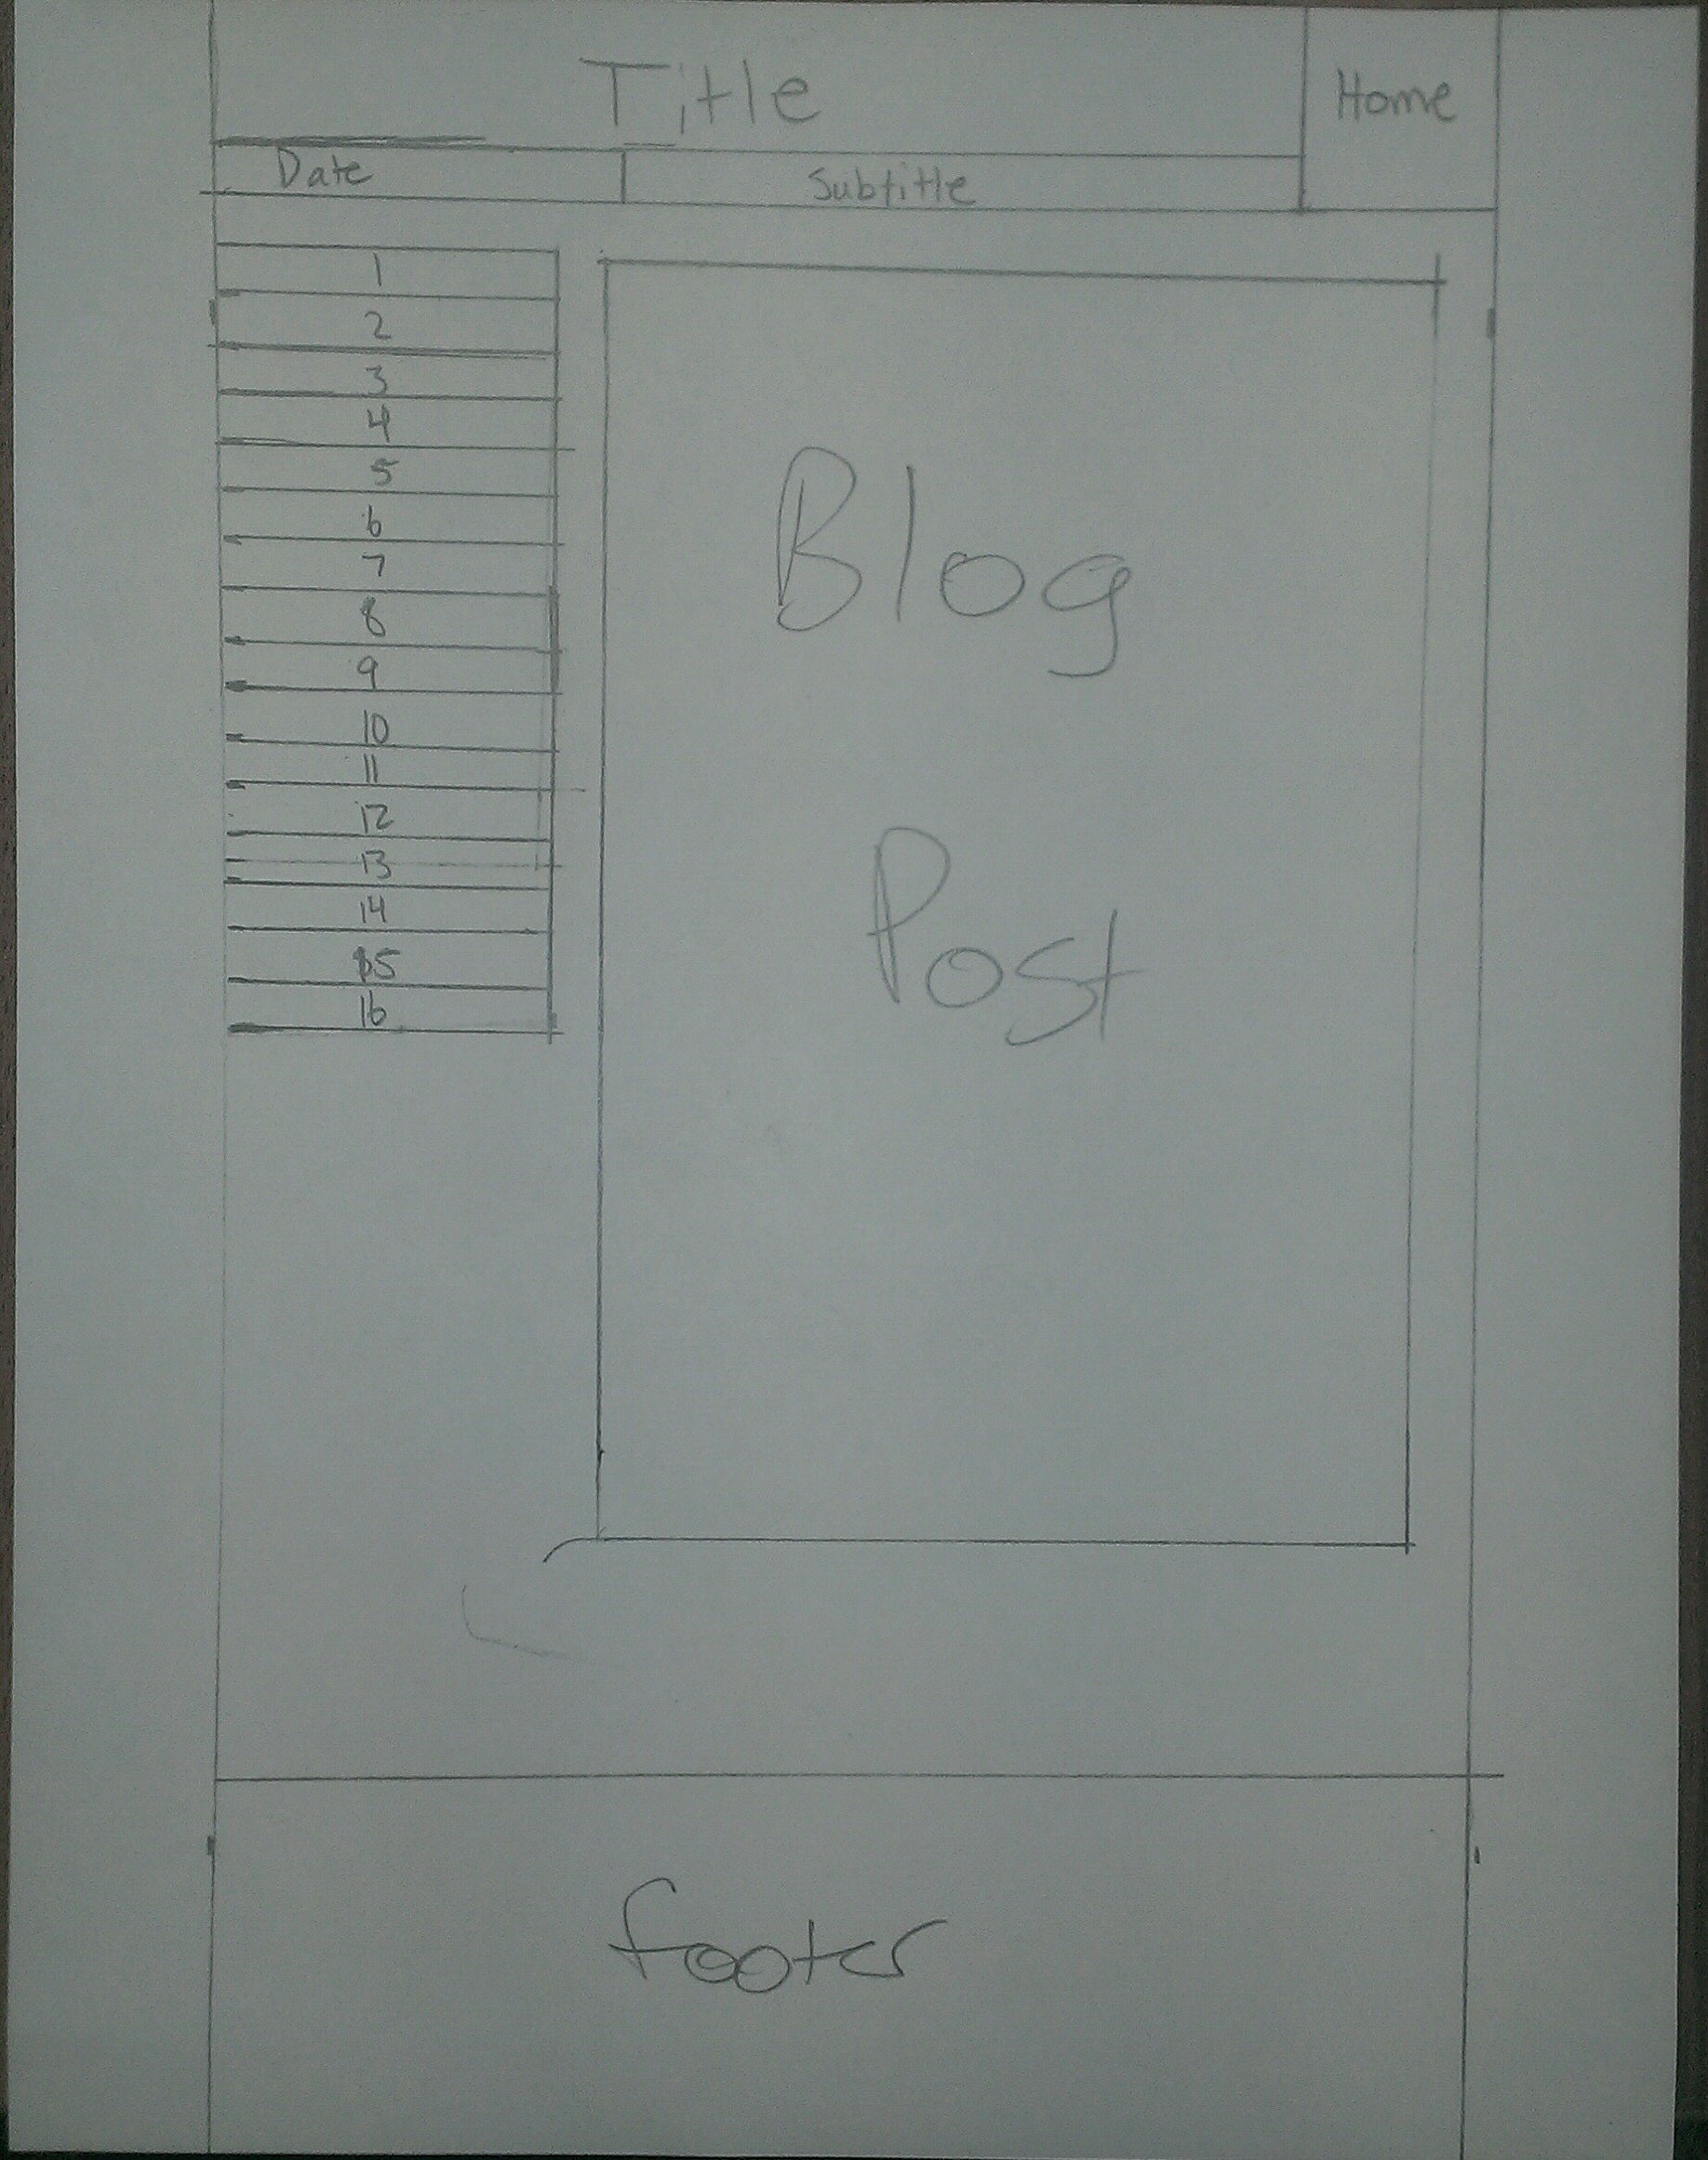 Title
Home
Date
Subtitle
1
2
3
4
5
6
7
8
9
10
11
12
13
14
15
16
Blog
Post
footer